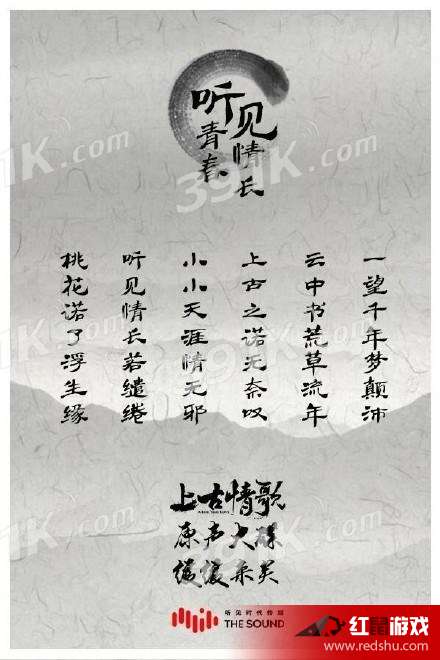 听见
青春
情长
一望千年梦颠沛
云中书荒草流年
上古之诺无奈叹
小小天涯情无邪
听见情长若缱绻
桃花诺了浮生缘
上古情歌
原声大碟
听见时代传媒
THE SOUND
红鼠游戏
www.redshu.com